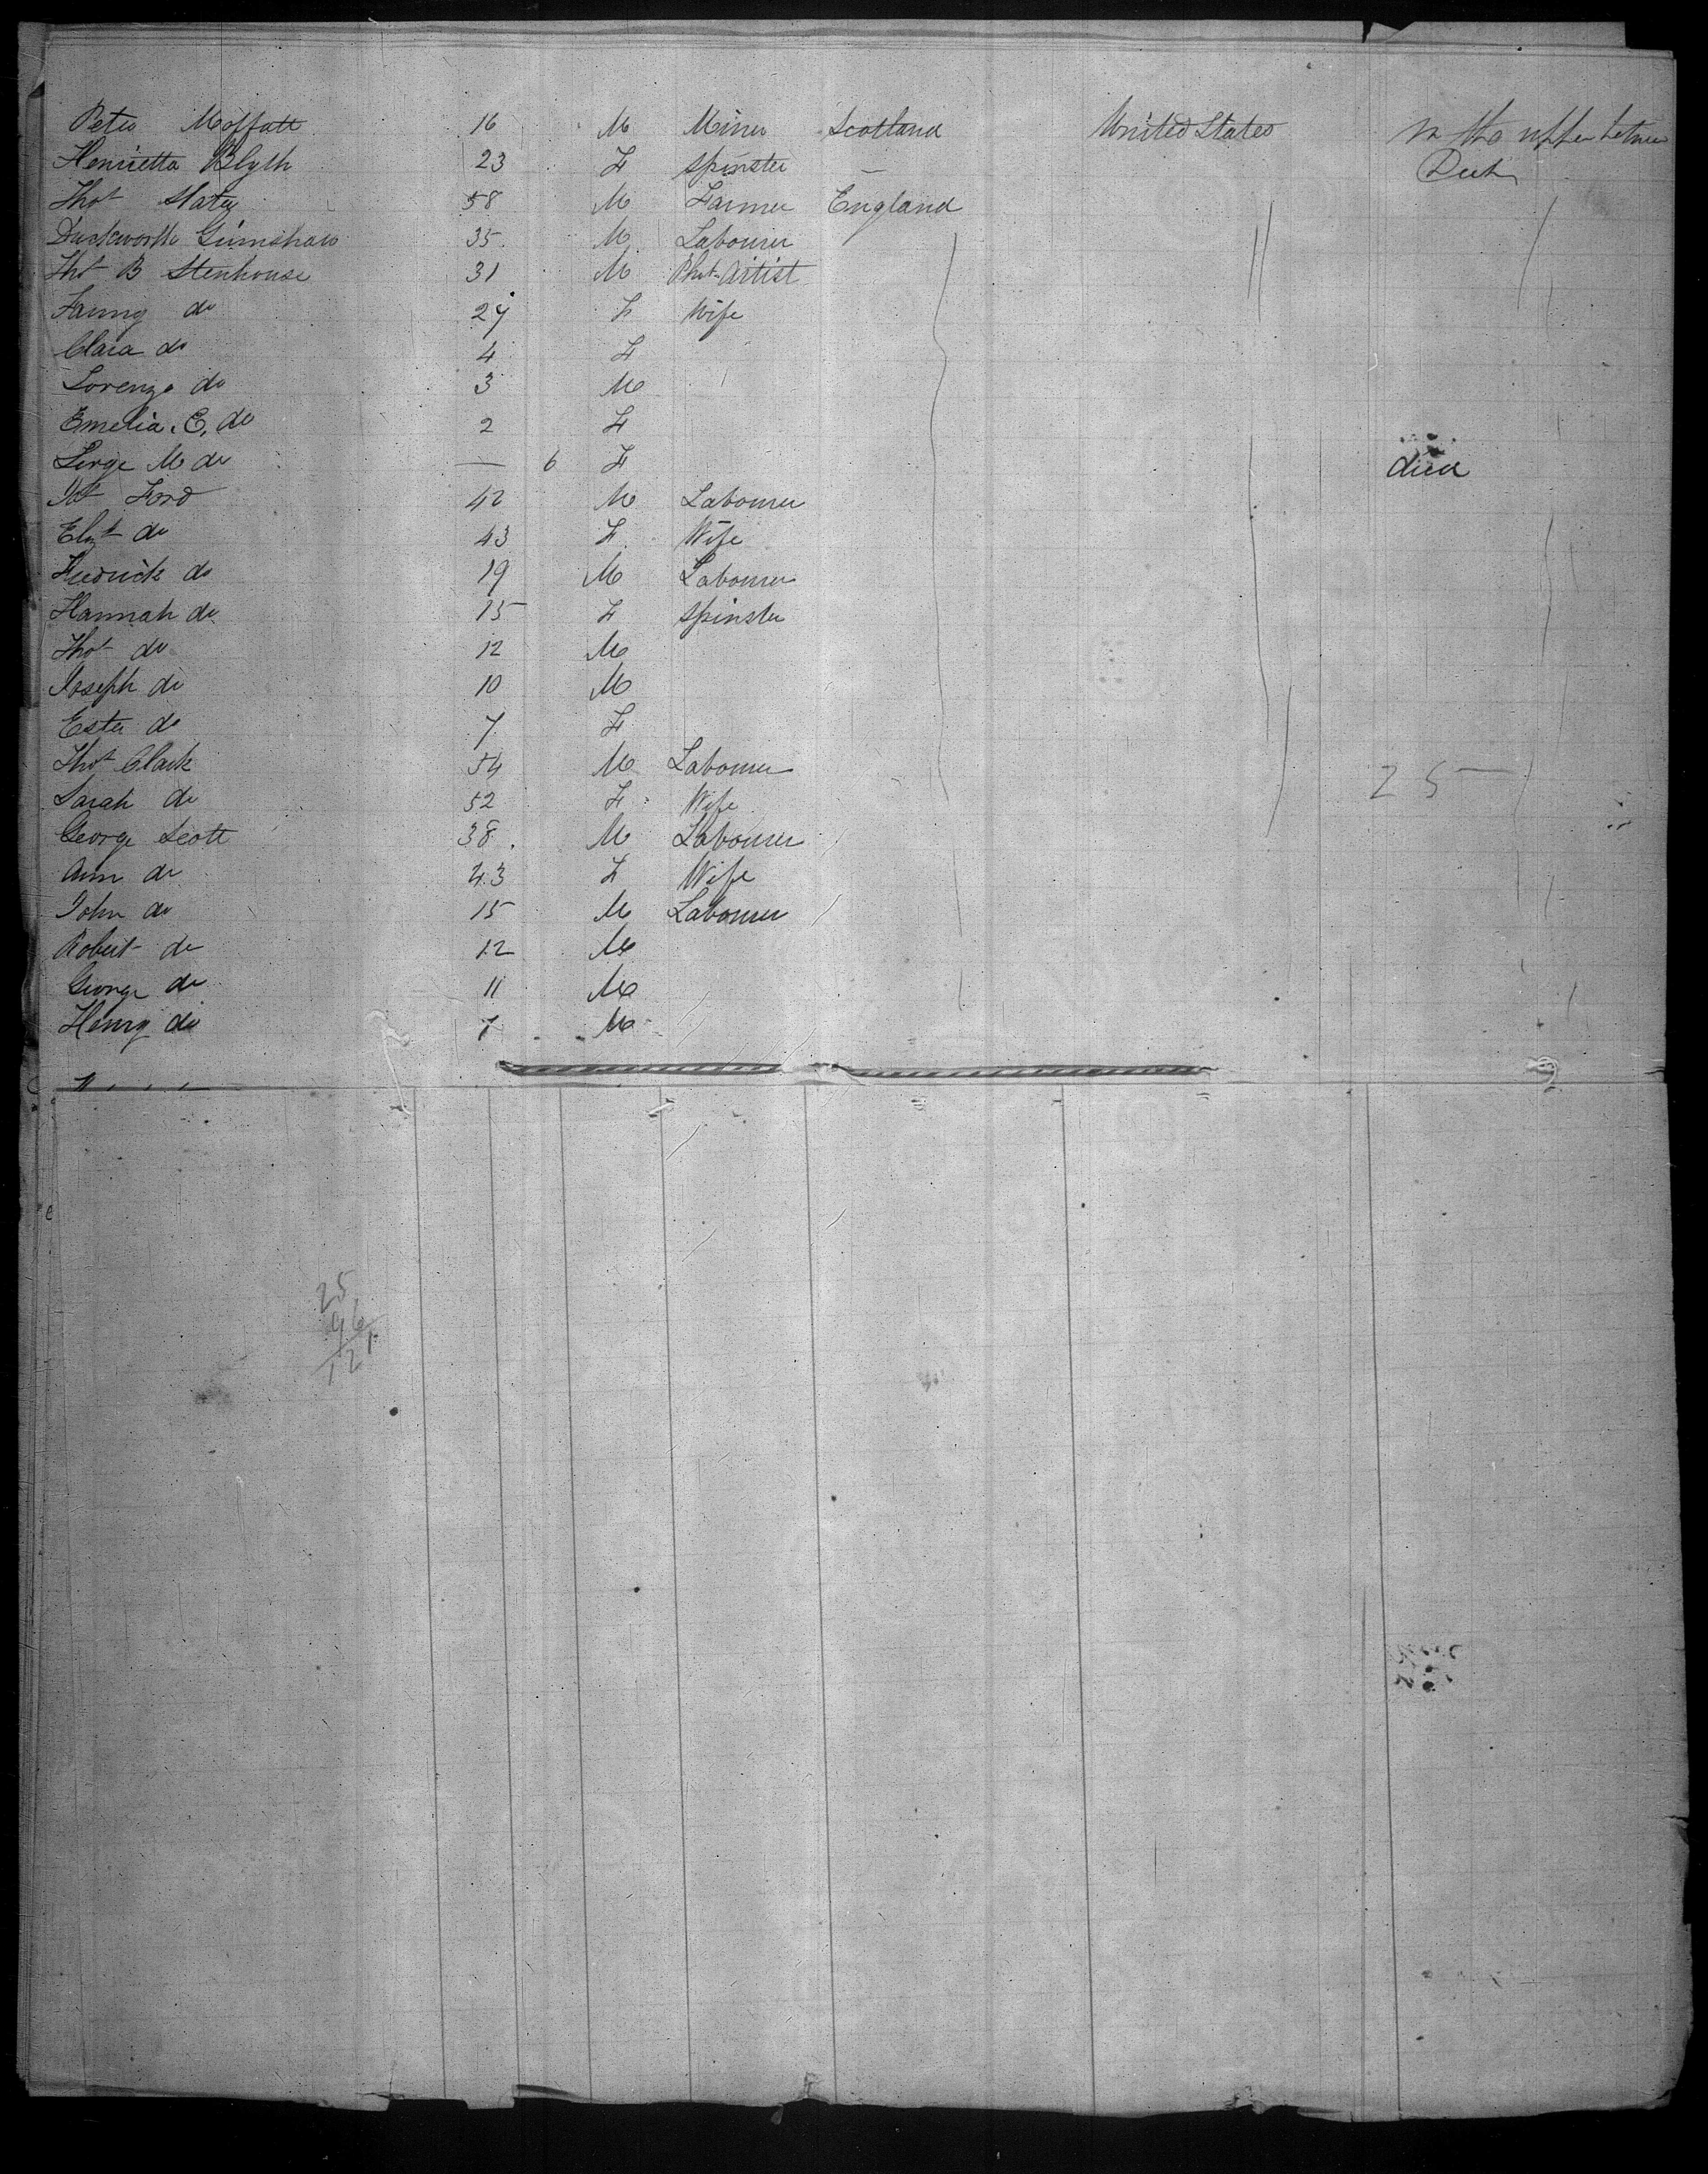 Peter Moffatt 16 M Miner Scotland United States In the upper between
Henrietta Blyth 23 F Spinster — Deck
Thos Slater 58 M Farmer England
Duckworth Grimshaw 35 M Labourer
Thos B Stenhouse 31 M Phot-Artist
Fanny do 27 F Wife
Clara do 4 F
Lorenzo do 3 M
Emelia. C. do 2 F
Serge M do — 6 F died
Jos Ford 42 M Labourer
Elizt do 43 F Wife
Fredrick do 19 M Labourer
Hannah do 15 F Spinster
Thos do 12 M
Joseph do 10 M
Ester do 7 F
Thos Clark 54 M Labourer 25
Sarah do 52 F Wife
George Scott 38 M Labourer
Ann do 43 F Wife
John do 15 M Labourer
Robert do 12 M
George do 11 M
Henry do 7 M
25
96
121